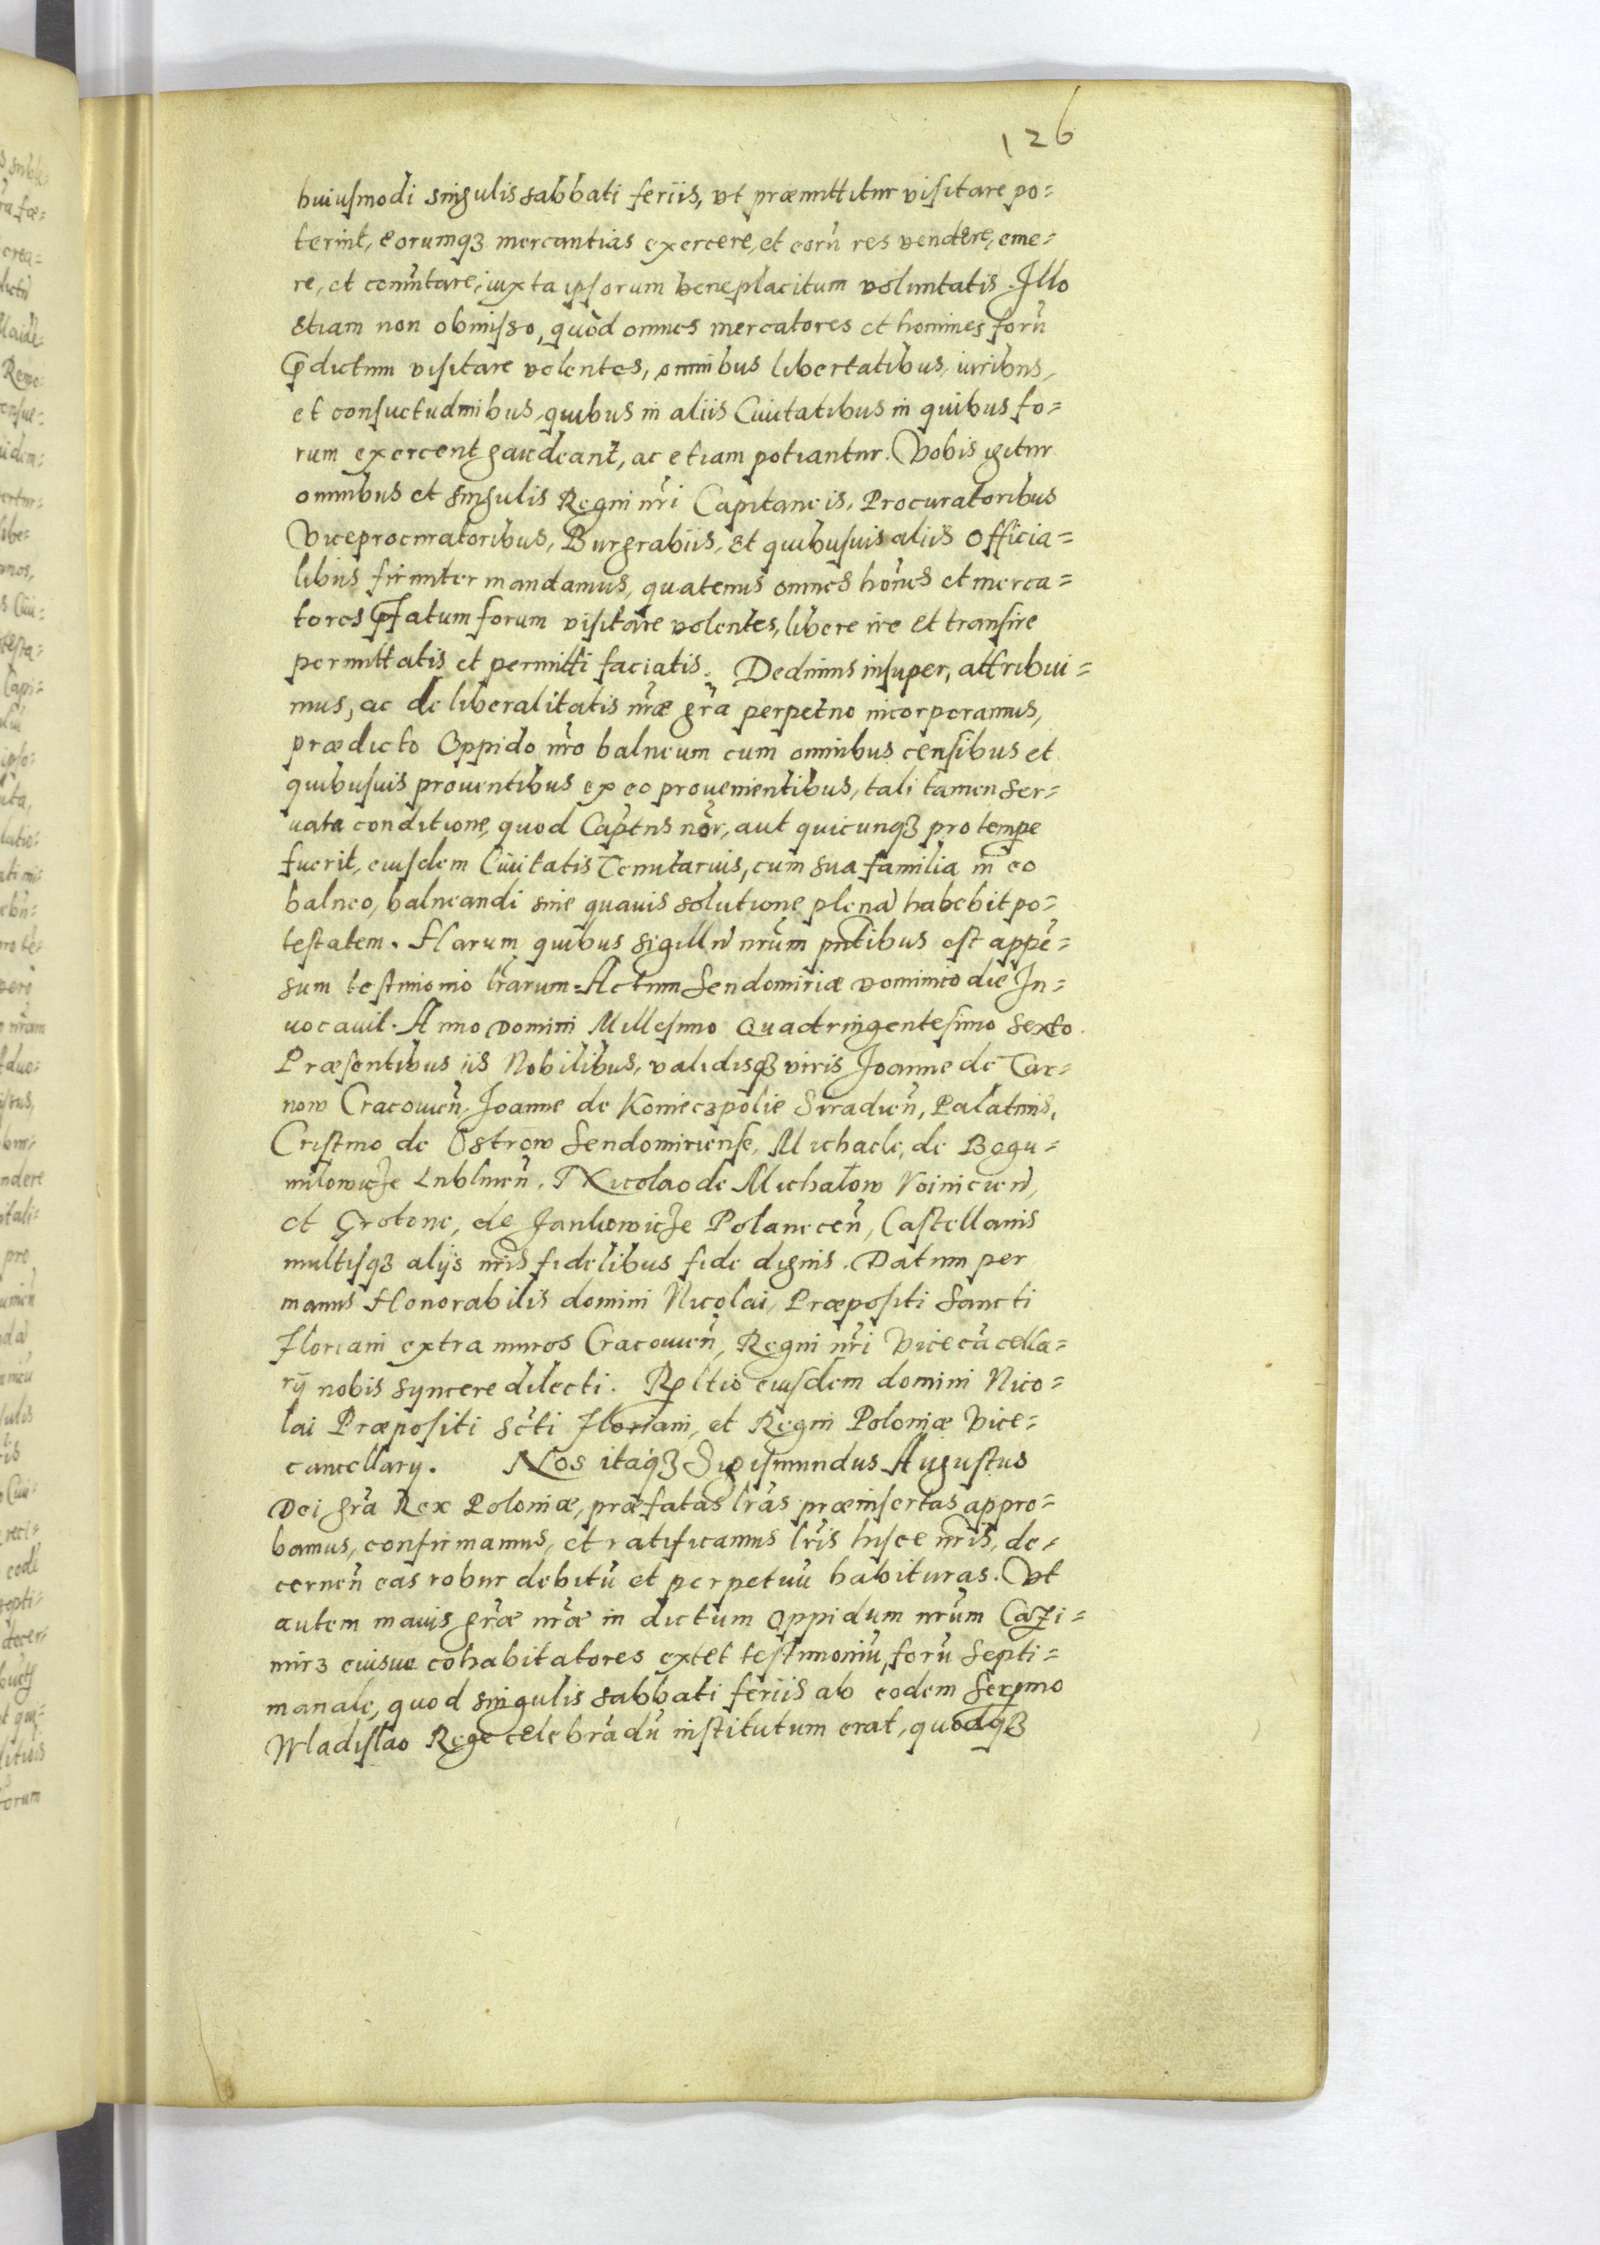 126
huiusmodi singulis sabbati feriis, vt præmittitur visitare po=
terint, eorumqꝫ mercantias exercere, et eorũ res vendere, eme=
re, et com̃utare, iuxta ipsorum beneplacitum voluntatis. Illo
etiam non obmisso, quòd omnes mercatores et homines forũ
p̃dictum visitare volentes, omnibus libertatibus, iuribus,
et consuetudinibus, quibus in aliis Ciuitatibus in quibus fo=
rum exercent gaudeant, ac etiam potiantur. Vobis igitur
omnibus et singulis Regni nr̃i Capitaneis, Procuratoribus
Viceprocuratoribus, Burgrabiis, et quibusuis aliis Officia=
libus firmiter mandamus, quatenus omnes hoĩes et merca=
tores p̃fatum forum visitare volentes, libere ire et transire
permittatis et permitti faciatis. Dedimus insuper, attribui=
mus, ac de liberalitatis nr̃æ gr̃a perpetuo incorporamus,
prædicto Oppido nr̃o balneum cum omnibus censibus et
quibusuis prouentibus ex eo prouenientibus, tali tamen ser=
uata conditione, quod Cap̃tns nõr, aut quicunqꝫ pro tempe
fuerit, eiusdem Ciuitatis Tenutarius, cum sua familia in eo
balneo, balneandi sine quauis solutione plenã habebit po=
testatem. Harum quibus sigillũ nr̃um pñtibus est appẽ=
sum testimonio lr̃arum. Actum Sendomiriæ dominico die In=
uocauit. Anno Domini Millesimo Quadringentesimo Sexto.
Præsentibus iis Nobilibus, validisqꝫ viris Joanne de Tar=
now Cracouieñ, Joanne de Koniecꝫpolie Siradieñ, Palatinis,
Cristino de Ostrow Sendomiriense, Michaele, de Bogu=
milowicze Lublineñ. Nicolao de Michałow Voinicieñ,
et Grotone, de Jankowicze Polaneceñ, Castellanis
multisqꝫ alijs nr̃is fidelibus fide dignis. Datum per
manus Honorabilis domini Nicolai, Præpositi Sancti
Floriani extra muros Cracouieñ, Regni nr̃i Vicecãcella=
rij nobis syncere dilecti. Rltio eiusdem domini Nico=
lai Præpositi Sc̃ti Floriani, et Regni Poloniæ Vice=
cancellarij. Nos itaqꝫ Sigismundus Augustus
Dei gr̃a Rex Poloniæ, præfatas lr̃as præinsertas appro=
bamus, confirmamus, et ratificamus lr̃is hisce nr̃is, de=
cerneñ eas robur debitũ et perpetuũ habituras. Vt
autem maius gr̃æ nr̃æ in dictum Oppidum nr̃um Cazi=
mirꝫ eiusue cohabitatores extet testimoniũ, forũ Septi=
manale, quod singulis sabbati feriis ab eodem Sermo
Wladislao Rege celebrãdũ institutum erat, quodqꝫ